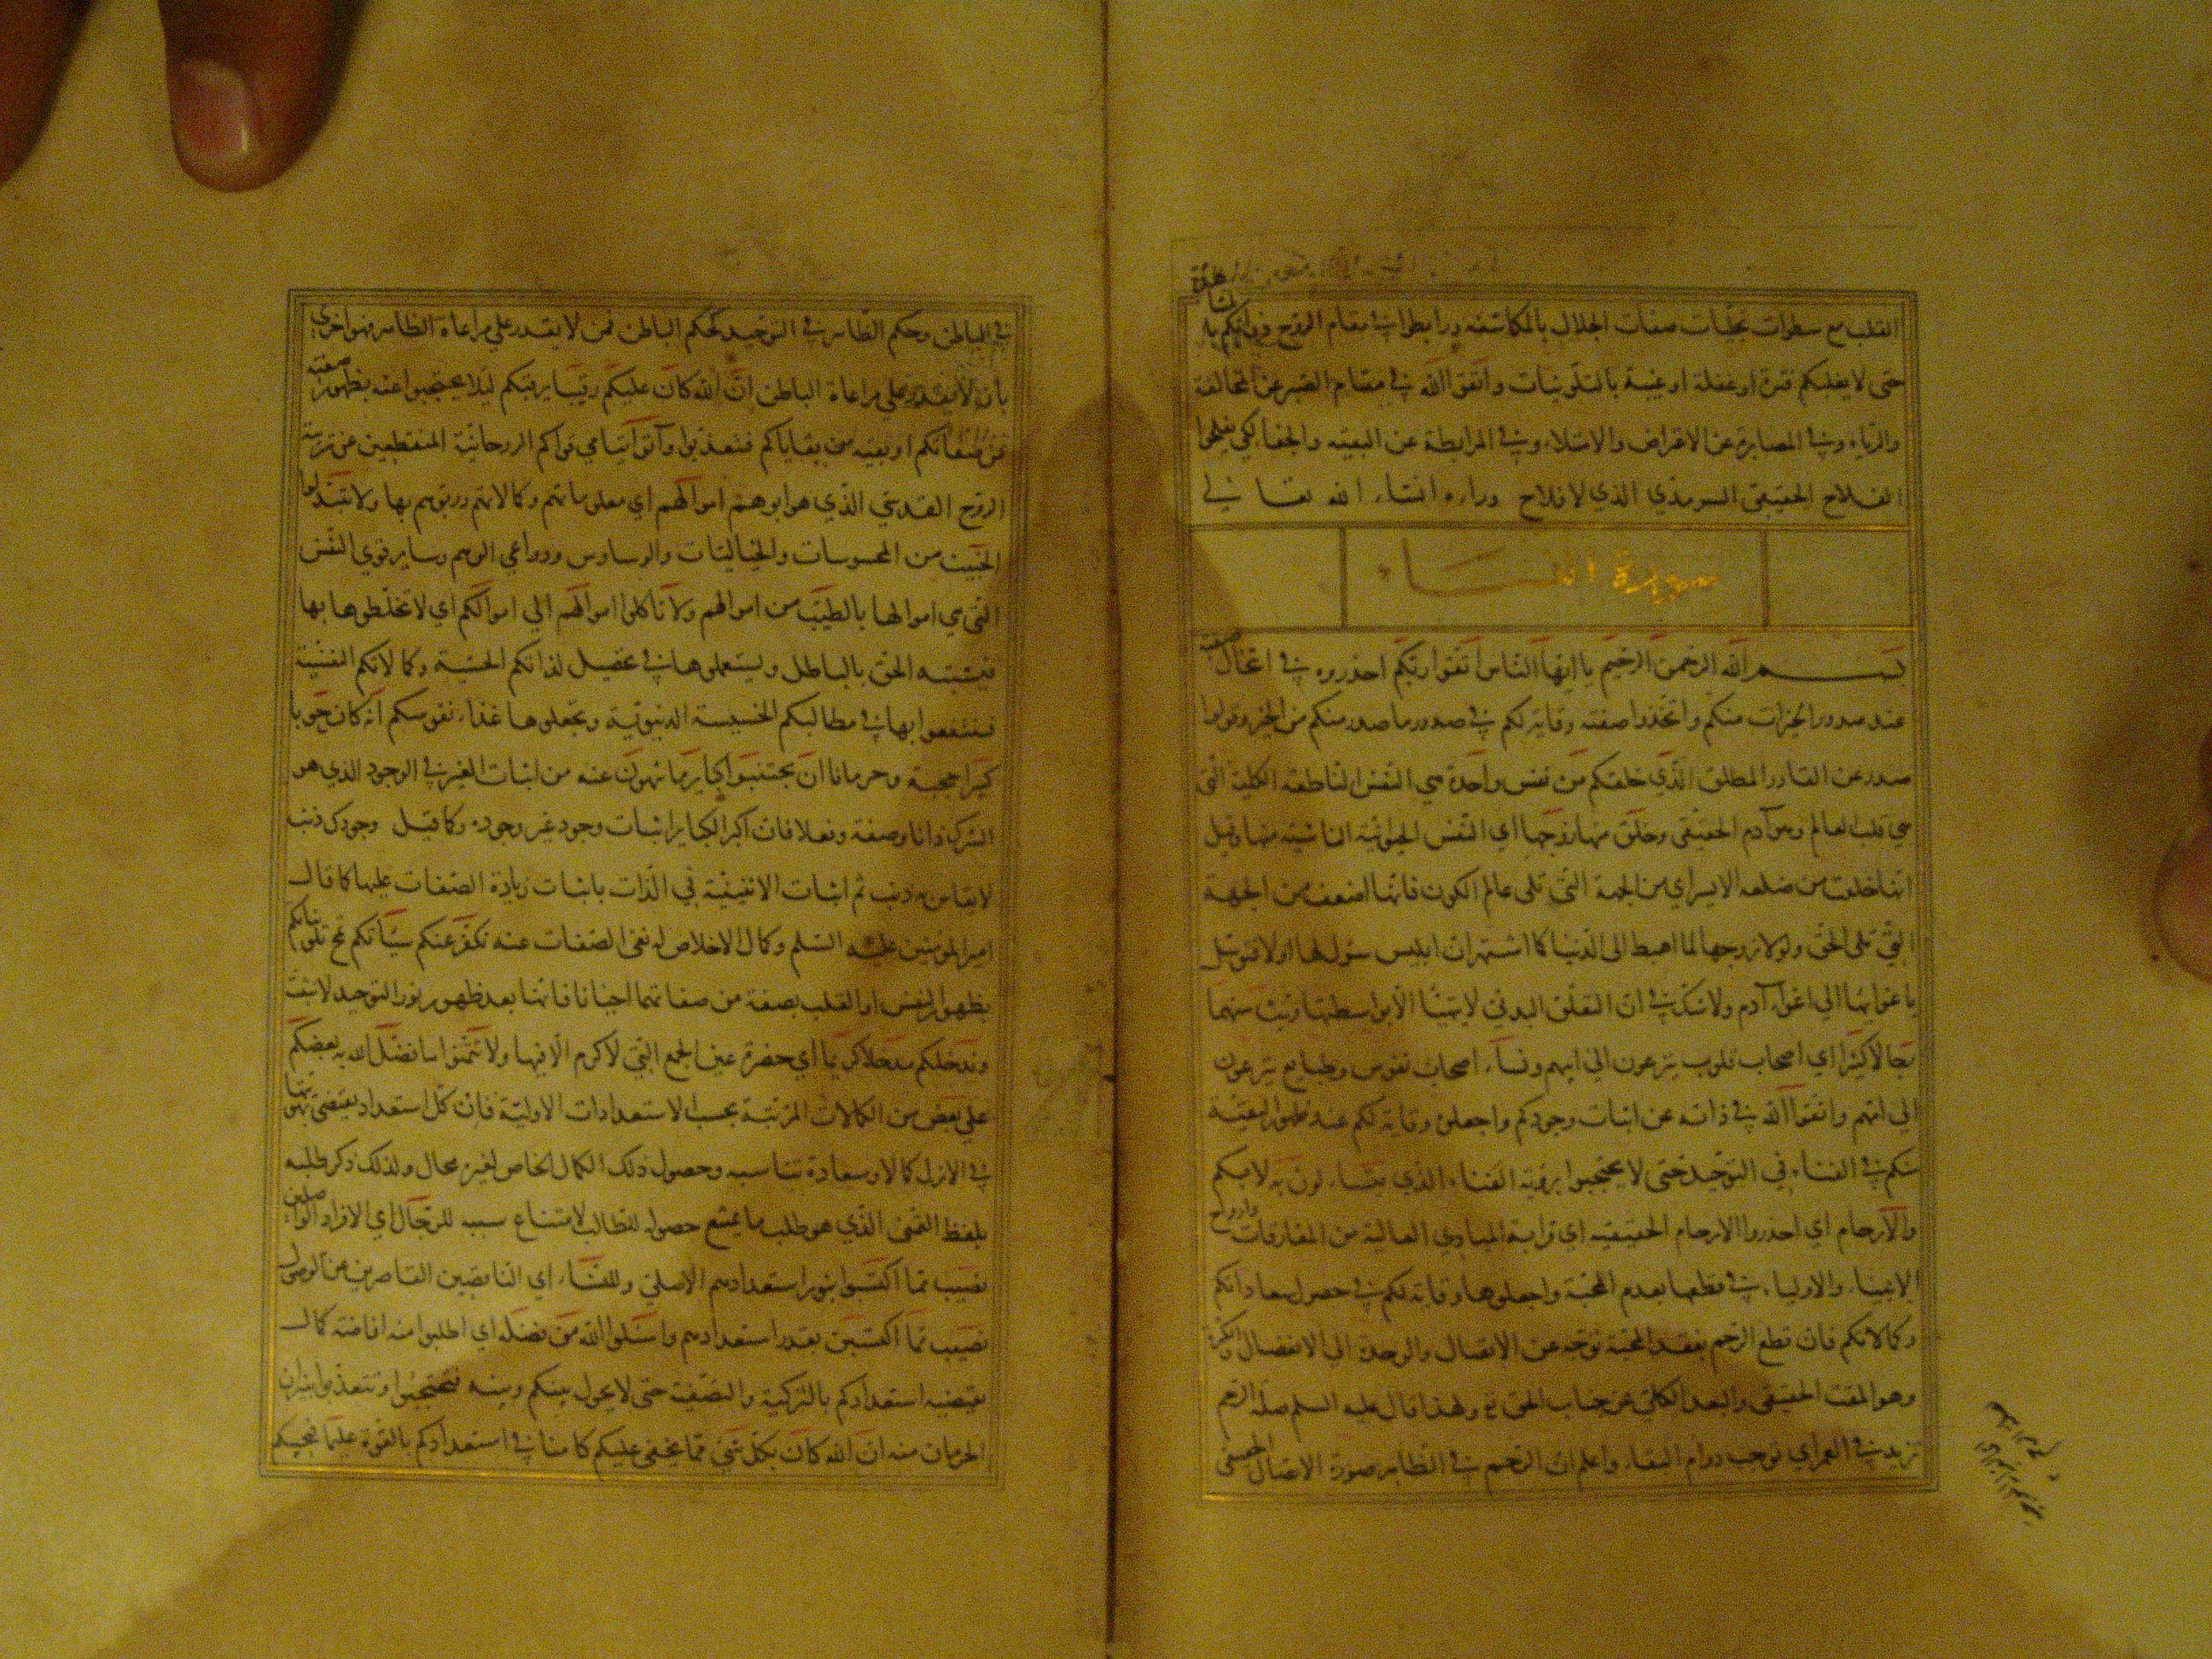 القلب مع سطوات تجليات صفات الجلال بالمكاشفة ورابطوا في مقام الروح ذواتكم بالمشاهدة
حتى لا يغلبكم فترة او غفلة او غيبة بالتلوينات واتقوا الله في مقام الصبر عن المخالفة
والرياء وفي المصابرة عن الاعتراض والامتلاء وفي المرابطة عن البقية والجفاء لكي تفلحوا
الفلاح الحقيقي السرمدي الذي لا فلاح وراءه انشاء الله تعالى
سورة النساء
بسم الله الرحمن الرحيم يا ايها الناس اتقوا ربكم احذروه في انتحال صفته
عند صدور الخيرات منكم واتخذوا صفته وقاية لكم في صدور ما صدر منكم من الخير وقولوا
صدر عن القادر المطلق الذي خلقكم من نفس واحدة هي النفس الناطقة الكلية التي
هي قلب العالم وهو آدم الحقيقي وخلق منها زوجها اي النفس الحيوانية الناشئة منها وقيل
انها خلقت من ضلعه الايسر اي من الجهة التي تلي عالم الكون فانها اضعف من الجهة
التي تلي الحق ولولا زوجها لما اهبط الى الدنيا كما اشتهر ان ابليس سول لها اولا فتوسل
باغوائها الي اغواء آدم ولا شك في ان التعلق البدني لا يتهيأ الا بواسطتها وبث منهما
رجالا كثيرا اي اصحاب قلوب ينزعون الي ابيهم ونساء اصحاب نفوس وطبايع ينزعون
الي امهم واتقوا الله في ذاته عن اثبات وجودكم واجعلوه وقاية لكم عند ظهور البقية
منكم في الفناء في التوحيد حتى لا يحتجبوا برؤية الفناء الذي تساءلون به لا بكم
والارحام اي احذروا الارحام الحقيقيه اي قرابة المبادي العالية من المفارقات وارواح
الانبياء والاولياء في قطعها بعدم المحبة واجعلوها وقاية لكم في حصول سعاداتكم
وكمالاتكم فان قطع الرحم بفقد المحبة توجه عن الاتصال والوحدة الي الانفصال والكثرة
وهو المقت الحقيقي والبعد الكلي عن جناب الحق تع ولهذا قال عليه السلم صلة الرحم
تزيد في العمر اي توجب دوام البقاء واعلم ان الرحم في الظاهر صورة الاتصال الحقيقي
في الباطن وحكم الظاهر في التوحيد كحكم الباطن فمن لا يقدر علي مراعاة الظاهر فهو احري
بان لا يقدر علي مراعاة الباطن ان الله كان عليكم رقيبا يرقبكم ليلا يحتجبوا عنه بظهور صفته
من صفاتكم او بقيه من بقاياكم فتعذبوا وآتوا يتامي قواكم الروحانية المنقطعين عن تربية
الروح القدسي الذي هو ابوهم اموالهم اي معلوماتهم وكمالاتهم وربوهم بها ولا تتبدلوا
الخبيث من المحسوسات والخياليات والوساوس ودواعي الوهم وساير قوي النفس
التي هي اموالها بالطيب من اموالهم ولا تاكلوا اموالهم الي اموالكم اي لا تخلطوها بها
فيشتبه الحق بالباطل ويستعملوها في تحصيل لذاتكم الحسية وكمالاتكم النفسية
فتنتفعوا بها في مطالبكم الخسيسة الدنيوية وتجعلوها غذاء نفوسكم انه كان حوبا
كبيرا حجبة وحرمانا ان تجتنبوا كباير ما تنهون عنه من اثبات الغير في الوجود الذي هو
الشرك ذاتا وصفة وفعلا فان اكبر الكباير اثبات وجود غير وجوده وكما قيل وجودك ذنب
لا يقاس به ذنب ثم اثبات الاثنينية في الذات باثبات زيادة الصفات عليها كما قال
امير المؤمنين عليه السلم وكمال الاخلاص له نفي الصفات عنه نكفر عنكم سيئاتكم نمح تلويناتكم
بظهور النفس او القلب بصفة من صفاتهما احيانا فانها بعد ظهور نور التوحيد لا تثبت
وندخلكم مدخلا كريما اي حضرة عين الجمع التي لا كرم الا فيها ولا تتمنوا ما فضل الله به بعضكم
علي بعض من الكمالات المرتبة بحسب الاستعدادات الاولية فان كل استعداد يقتضي بهويته
في الازل كمالا وسعادة تناسبه وحصول ذلك الكمال الخاص لغيره محال ولذلك ذكر طلبه
بلفظ التمني الذي هو طلب ما يمتنع حصوله للطالب لامتناع سببه للرجال اي الافراد الواصلين
نصيب مما اكتسبوا بنور استعدادهم الاصلي وللنساء اي الناقصين القاصرين عن الوصول
نصيب مما اكتسبن بقدر استعدادهم واسئلوا الله من فضله اي اطلبوا منه افاضة كمال
يقتضيه استعدادكم بالتزكية والتصفية حتى لا يحول بينكم وبينه فتحتجبوا وتتعذبوا بنيران
الحرمان منه ان الله كان بكل شئ مما يخفي عليكم كامنا في استعدادكم بالقوة عليما فيجيبكم